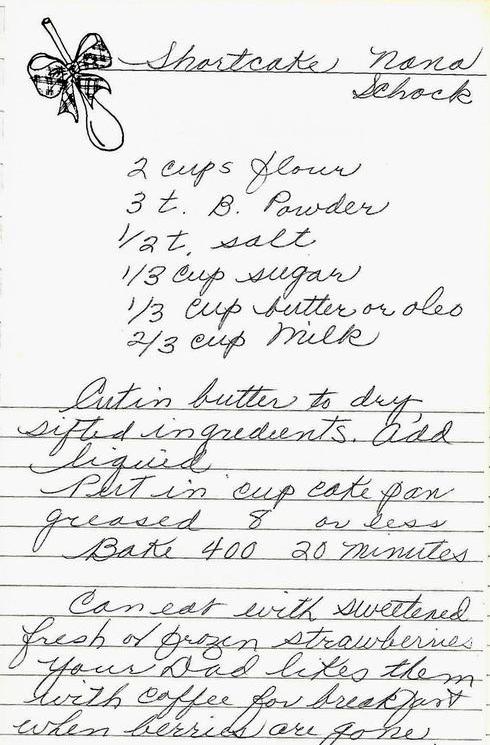 Shortcake Nana
Schock
2 cups flour
3 t. B. Powder
1/2 t. salt
1/3 cup sugar
1/3 cup butter or oleo
2/3 cup Milk
Cut in butter to dry
sifted ingredients. Add
liquid
Put in cup cake pan
greased 8 or less
Bake 400 20 minutes
Can eat with sweetened
fresh or frozen strawberries
your Dad likes them
with coffee for breakfast
when berries are gone